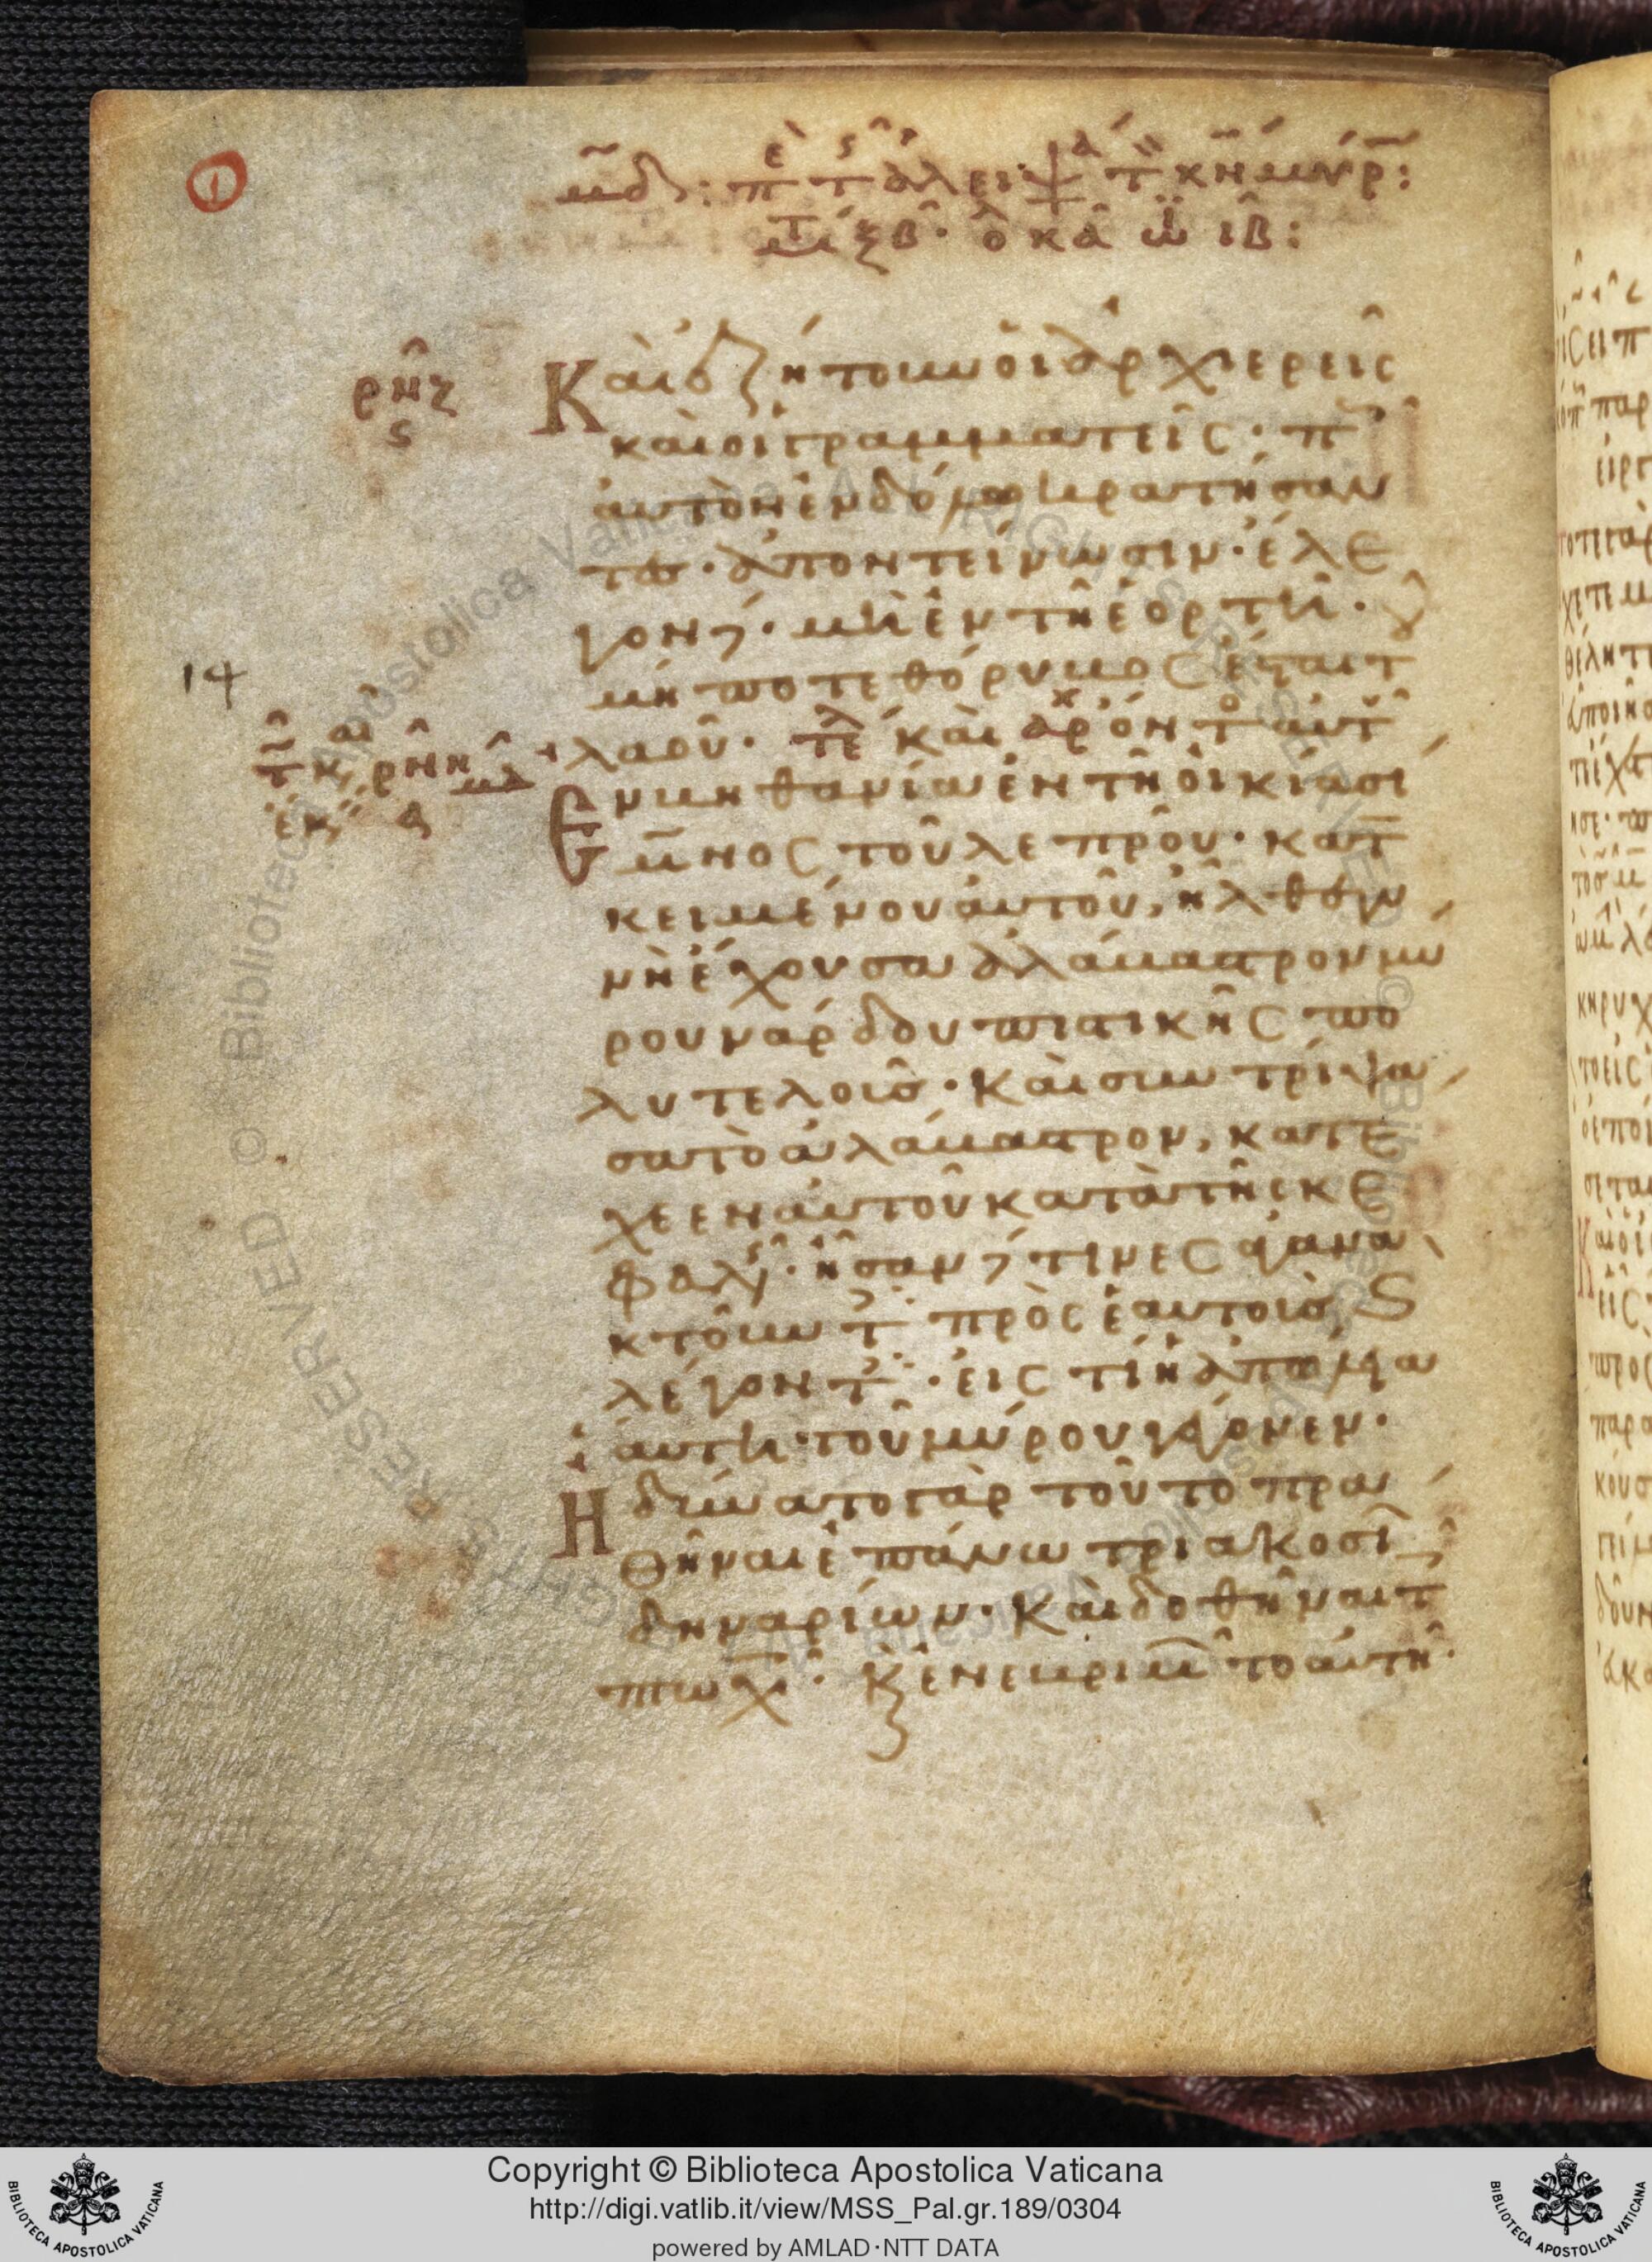 μδ: πε τ αλειψα τ κν μυρ:
μτ ξβ. ο κα ιω ιβ:
ρνζ
ς
Καὶ ἐζήτουν οἱ ἀρχιερεῖς
καὶ οἱ γραμματεῖς· π
αὐτὸν ἐν δόλω κρατήσαν
τες· ἀποκτείνωσιν· ἔλε
γον δ· μὴ ἐν τῆ ἑορτῆ·
μή ποτε θόρυβος ἔσται τ
λαοῦ. τε καὶ αρχ ὄντ αὐτ
Εν βηθανία ἐν τῆ οἰκία σί
μνος τοῦ λεπροῦ· κατ
κειμένου αὐτοῦ, ἦλθε γυ
νὴ ἔχουσα ἀλάβαστρον μύ
ρου νάρδου πιστικῆς πο
λυτελοῦς· Καὶ συντρίψα
σα τὸ ἀλάβαστρον, κατέ
χεεν αὐτοῦ κατὰ τῆς κε
φαλῆς· ἦσαν δ τινες ἀγανα
κτοῦντ πρὸς ἑαυτούς, S
λέγοντ· εἰς τί ἡ ἀπώλεια
αὕτη τοῦ μύρου γέγονεν·
Ηδύνατο γὰρ τοῦτο πρα
θῆναι ἐπάνω τριακοσί
δηναρίων· Καὶ δοθῆναι τ
πτωχ. Κ ἐνεβριμ το αὐτῆ·
14
Copyright © Biblioteca Apostolica Vaticana
http://digi.vatlib.it/view/MSS_Pal.gr.189/0304
powered by AMLAD·NTT DATA
BIBLIOTECA APOSTOLICA VATICANA
BIBLIOTECA APOSTOLICA VATICANA